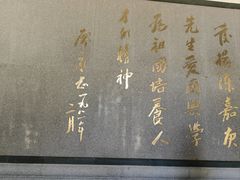 发扬陈嘉庚
先生爱国兴学
为祖国培养人
才的精神
一九八一年
二月